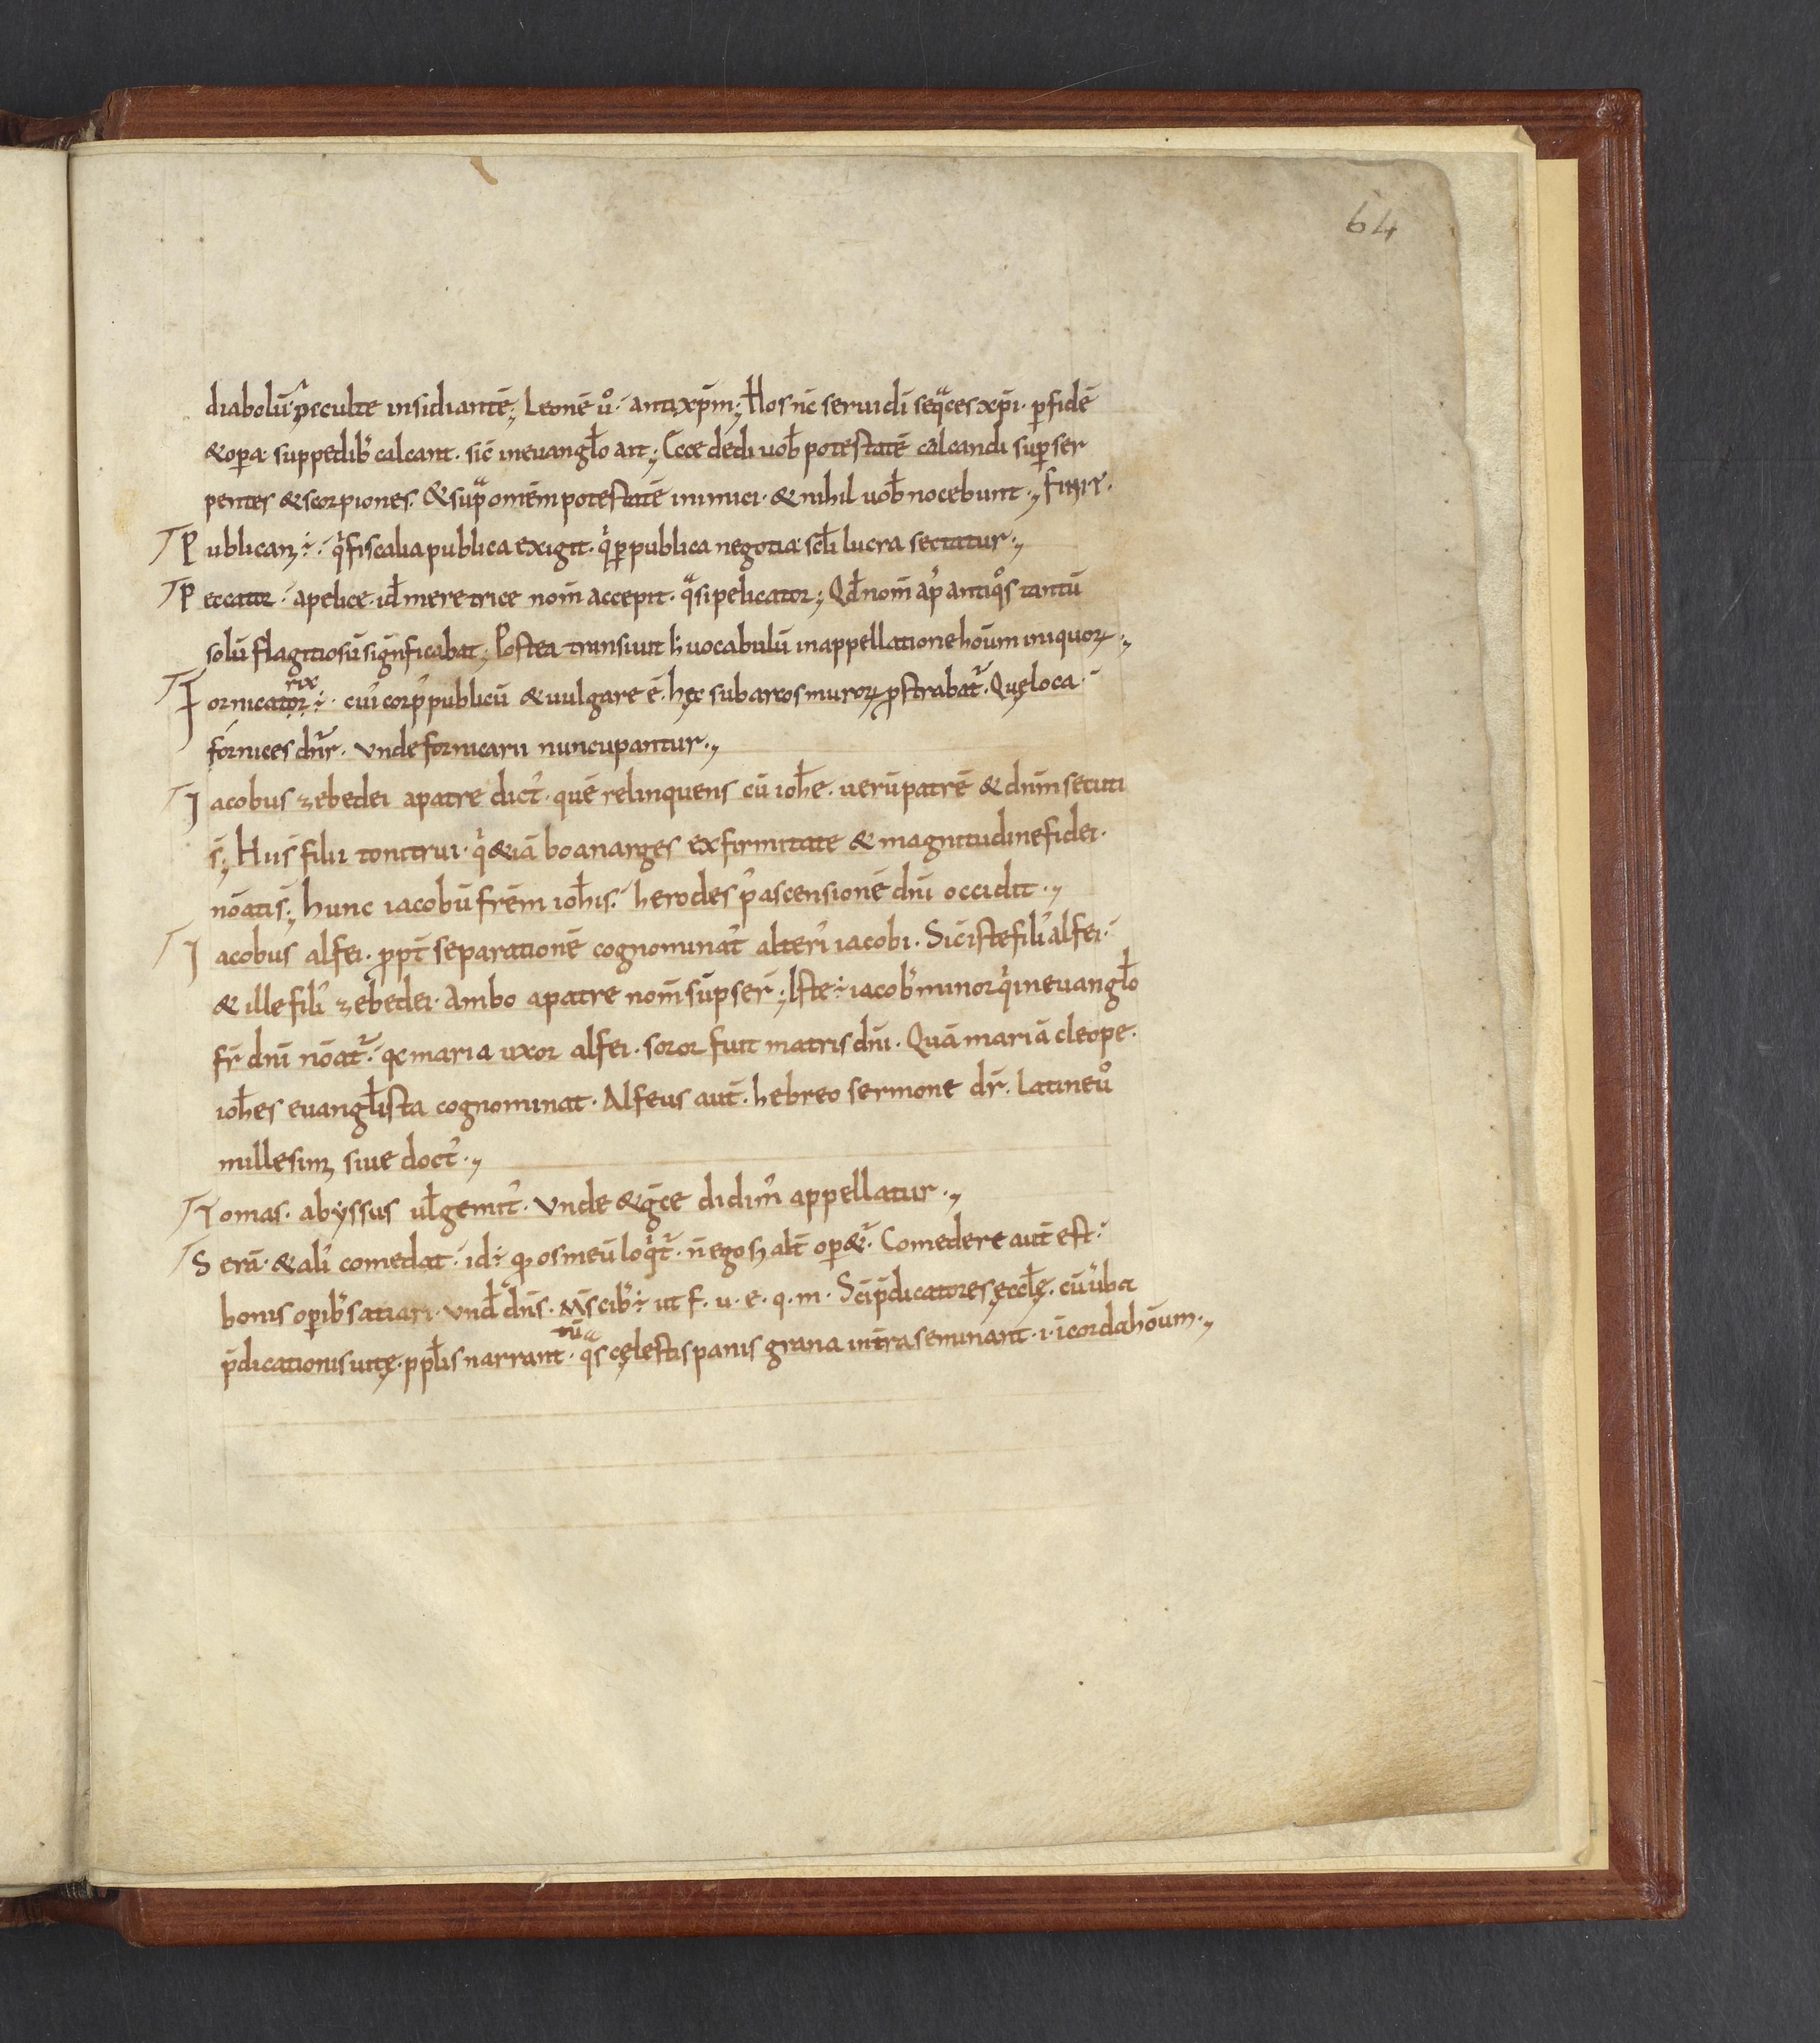 64
diabolū p̄ occulte insidiantē; Leonē u̇. antixp̄m; Hos nc̄ serui dī seq̄ces xp̄i. ꝑ fidē
& oꝑa sup pedib; calcant. sic̄ in euangło ait; Ecce dedi uob̄ potestatē calcandi suꝑ ser
pentes & scorpiones. & sup̄ om̄em potestatē inimici. & nihil uob̄ nocebunt.; FINIT.
Publican; ÷. q̇ fiscalia publica exigit. q̇ ꝑ publica negotia scłi lucra sectatur.;
Peccator. a pelice. id̄ meretrice nom̄ accepit. q̄si pelicator; Qd̄ nom̄ ap' antiq̊s tantū
solū flagitiosū significabat; Postea transiuit h' uocabulū in appellatione hoūm iniquoꝝ.;
rix
Fornicator ÷. cui' corp' publicū & uulgare ē. hęc sub arcos muroꝝ ꝓstrabat̄. Quę loca
fornices dn̄r. Vnde fornicarii nuncupantur.;
Iacobus zebedei a patre dict'. quē relinquens cū ioħe. uerū patrē & dn̄m secuti
s̄; Hii s̄ filii tonitrui. q̇ &iā boanarges ex firmitate & magnitudine fidei.
nōati s̄; hunc iacobū frēm ioħis. herodes p' ascensionē dn̄i occidit.;
Iacobus alfei. ꝓpt̄ separationē cognominat' alteri' iacobi. Sic̄ iste fili' alfei
& ille fili' zebedei. Ambo a patre nom̄ sūpser̄; Iste ÷ iacob' minor q̇ in euangło
fr̄ dn̄i nōat̄. qc maria uxor alfei. soror fuit matris dn̄i. Quā mariā cleope.
ioħes euangłista cognominat. Alfeus aut̄. hebreo sermone dr̄. Latine u̇
millesim; siue doct'.;
Tomas. abyssus uł gemit'. Vnde & g̅ce didim' appellatur.;
Serā. & ali' comedat. id ÷ qꝫ os meū loq̇t̄. n̄ ego s; alt̄ oꝑ&. Comedere aut̄ est
bonis oꝑib; satiari. Vnd̄ dn̄s. M̄s cib' ÷ ut f. u. e. q. m. Sc̄i p̄dicatores ęccłę. cū ūba
tū
p̄dicationis uitę. ppłis narrant. q̄s cęlestis panis grana in t̄ra seminant. i. ī corda hoūm.;